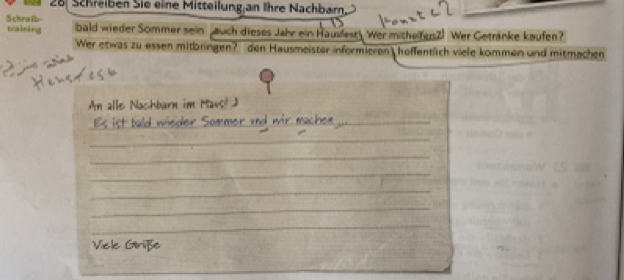 26 Schreiben Sie eine Mitteilung an Ihre Nachbarn.
Schreib-
training
bald wieder Sommer sein auch dieses Jahr ein Hausfest Wer mithelfen? Wer Getränke kaufen?
Wer etwas zu essen mitbringen? den Hausmeister informieren hoffentlich viele kommen und mitmachen
An alle Nachbarn im Haus!
Es ist bald wieder Sommer und wir machen ...
Viele Grüße